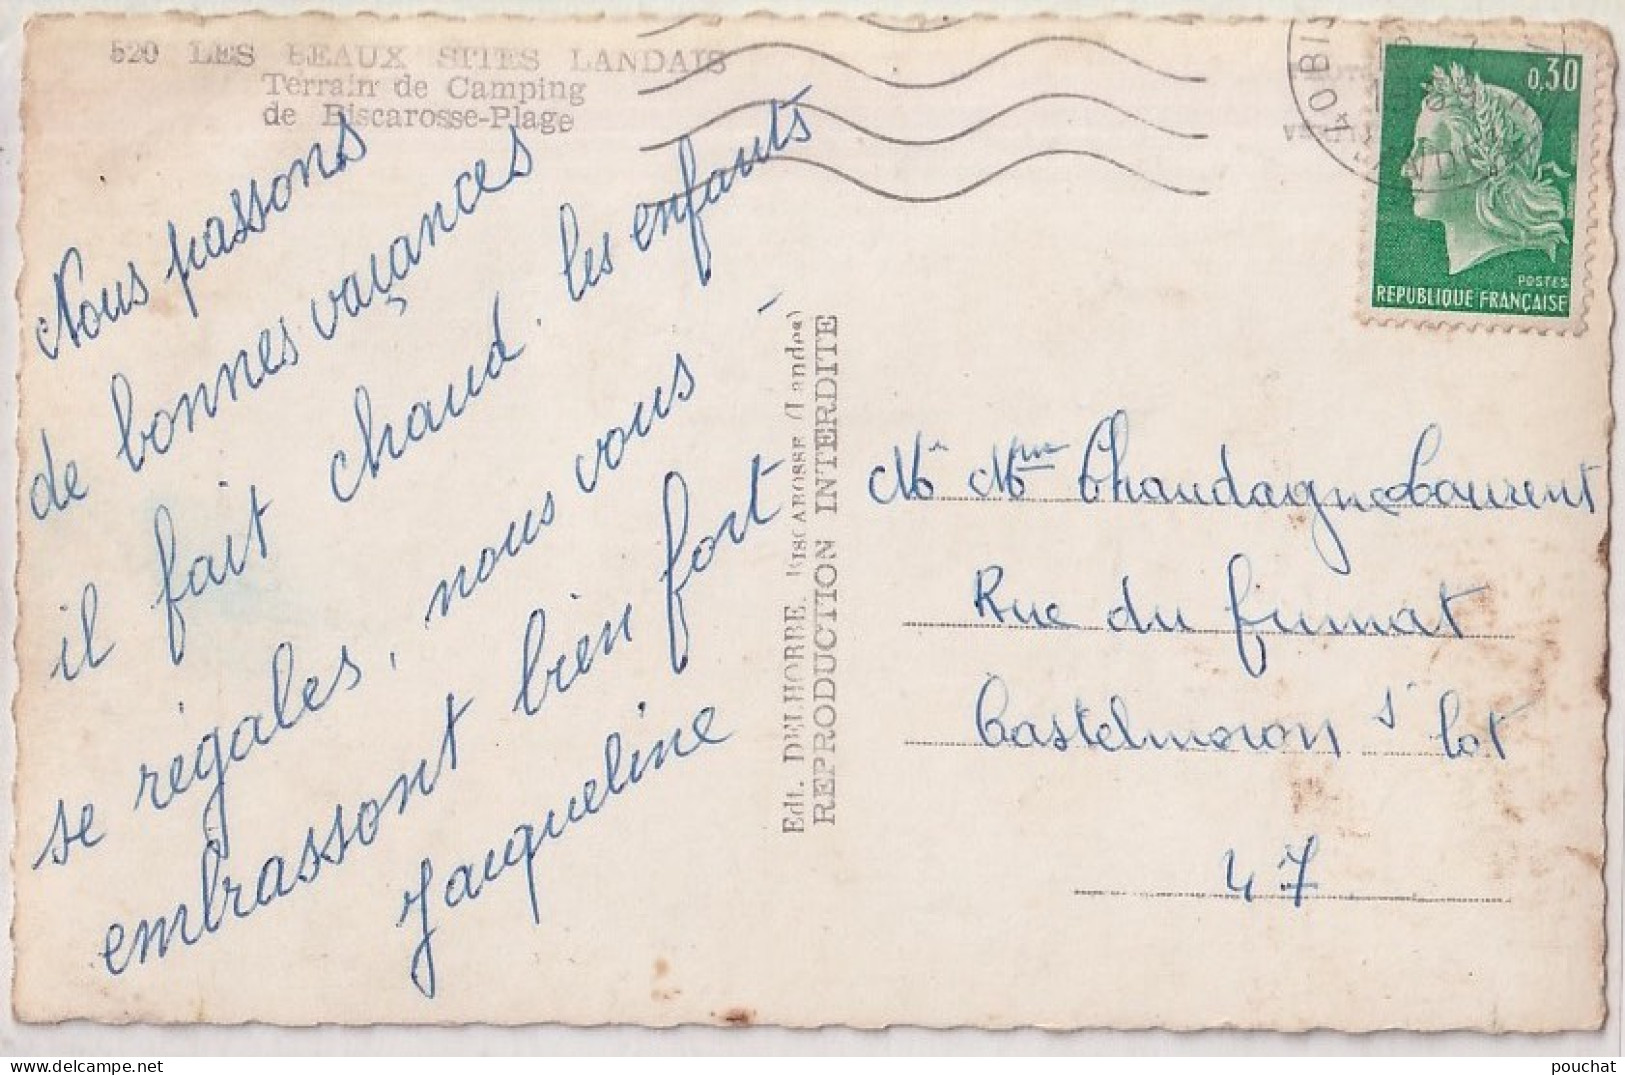 520 LES BEAUX SITES LANDAIS
Terrain de Camping
de Biscarosse-Plage
Nous passons
de bonnes vaçances
il fait chaud. les enfants
se régales, nous vous
embrassont bien fort
Jacqueline
Edt. DELHORBE. BISCAROSSE (Landes)
REPRODUCTION INTERDITE
0,30
POSTES
REPUBLIQUE FRANÇAISE
Mr Mme Chaudagne Laurent
Rue du fumat
Castelmoron s/ Lot
47
pouchat